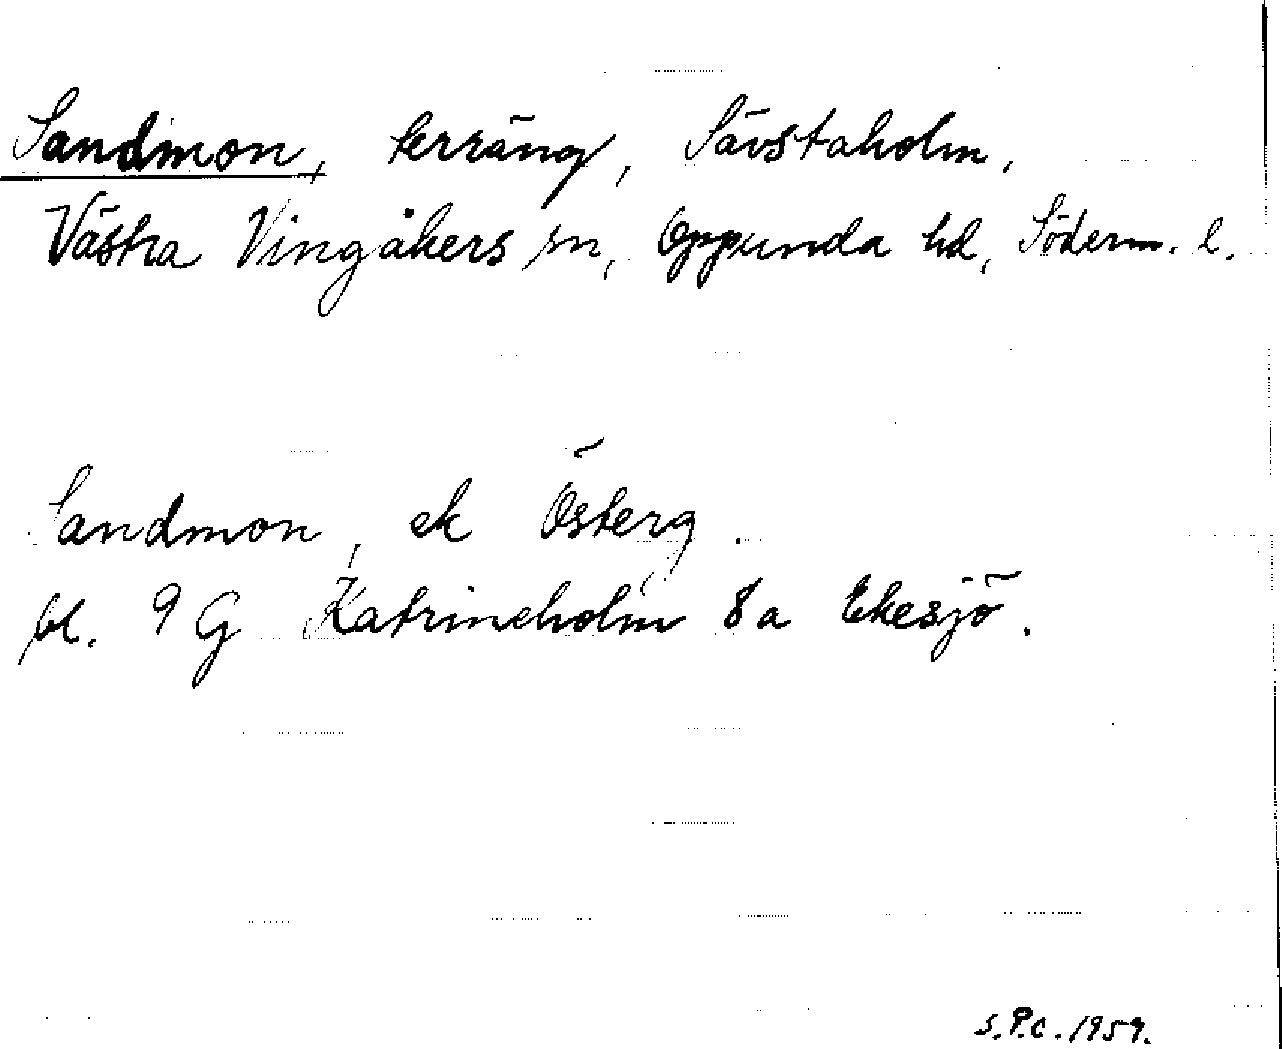 Sandmon, terräng, Sävstaholm,
Västra Vingåkers sn, Oppunda hd, Söderm. l.
Sandmon, ek Österg.
bl. 9 G Katrineholm 8a Ekesjö.
S.P.C. 1959.